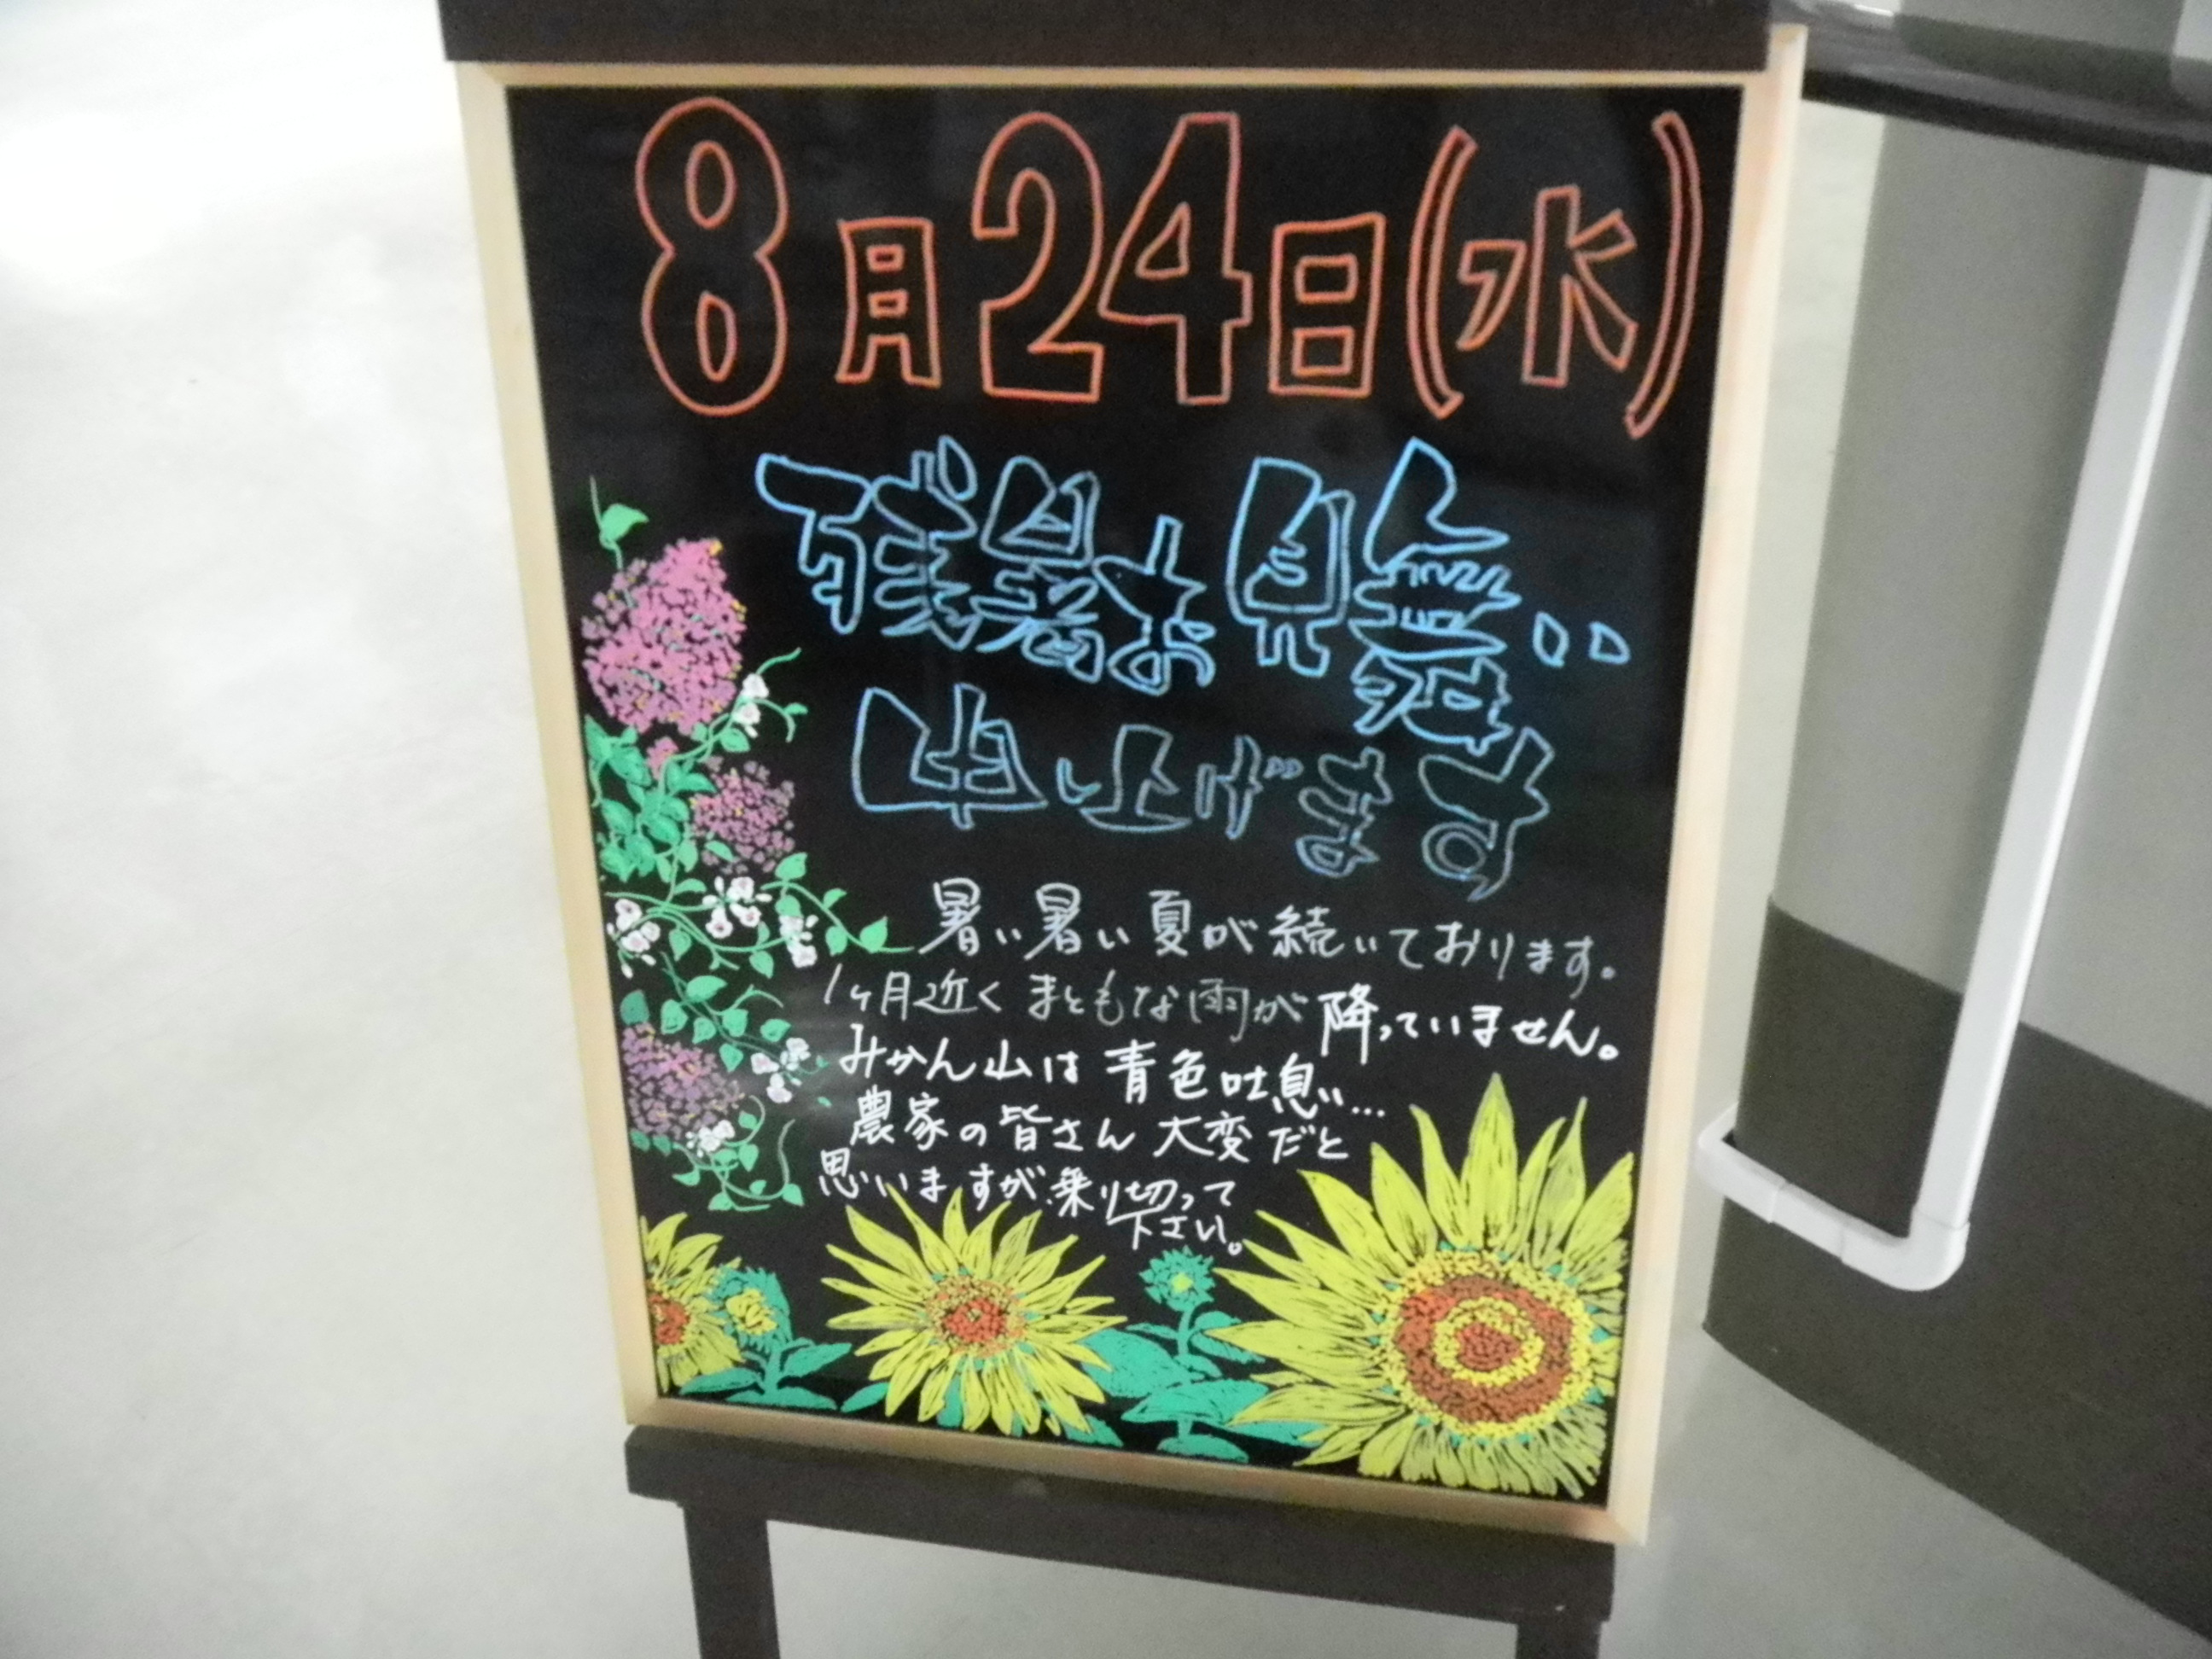 8月24日(水)
残暑お見舞い
申し上げます
暑い暑い夏が続いております。
1ヶ月近くまともな雨が降っていません。
みかん山は青色吐息い…
農家の皆さん大変だと
思いますが、乗り切って
下さい。